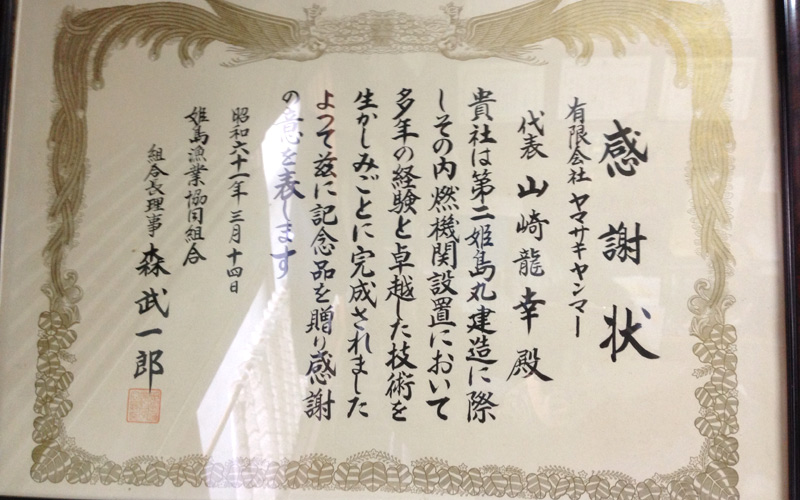 感謝状
有限会社 ヤマサキヤンマー
代表 山崎龍幸殿
貴社は第二姫島丸建造に際
しその内燃機関設置において
多年の経験と卓越した技術を
生かしみごとに完成されました
よつて茲に記念品を贈り感謝
の意を表します
昭和六十一年三月十四日
姫島漁業協同組合
組合長理事 森武一郎